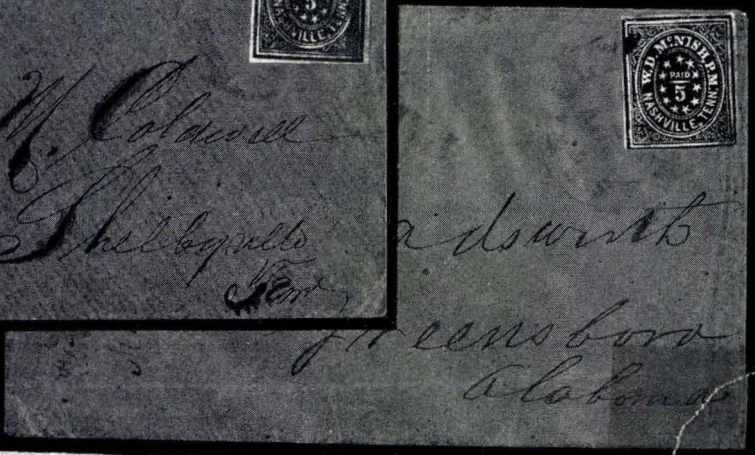 5
NASHVILLE, TENN.
M. Caldwell
Shelbyville
Tenn
W.D. McNISH, P.M.
PAID
5
NASHVILLE, TENN.
adsworth
Greensboro
Alabama